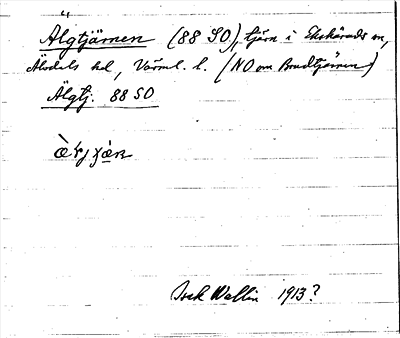 Älgtjärnen (88 SO), tjärn i Ekshärads sn,
Älvdals hd, Värml. l. (NO om Brudtjärnen)
Älgtj. 88 SO
Isak Wallin 1913?